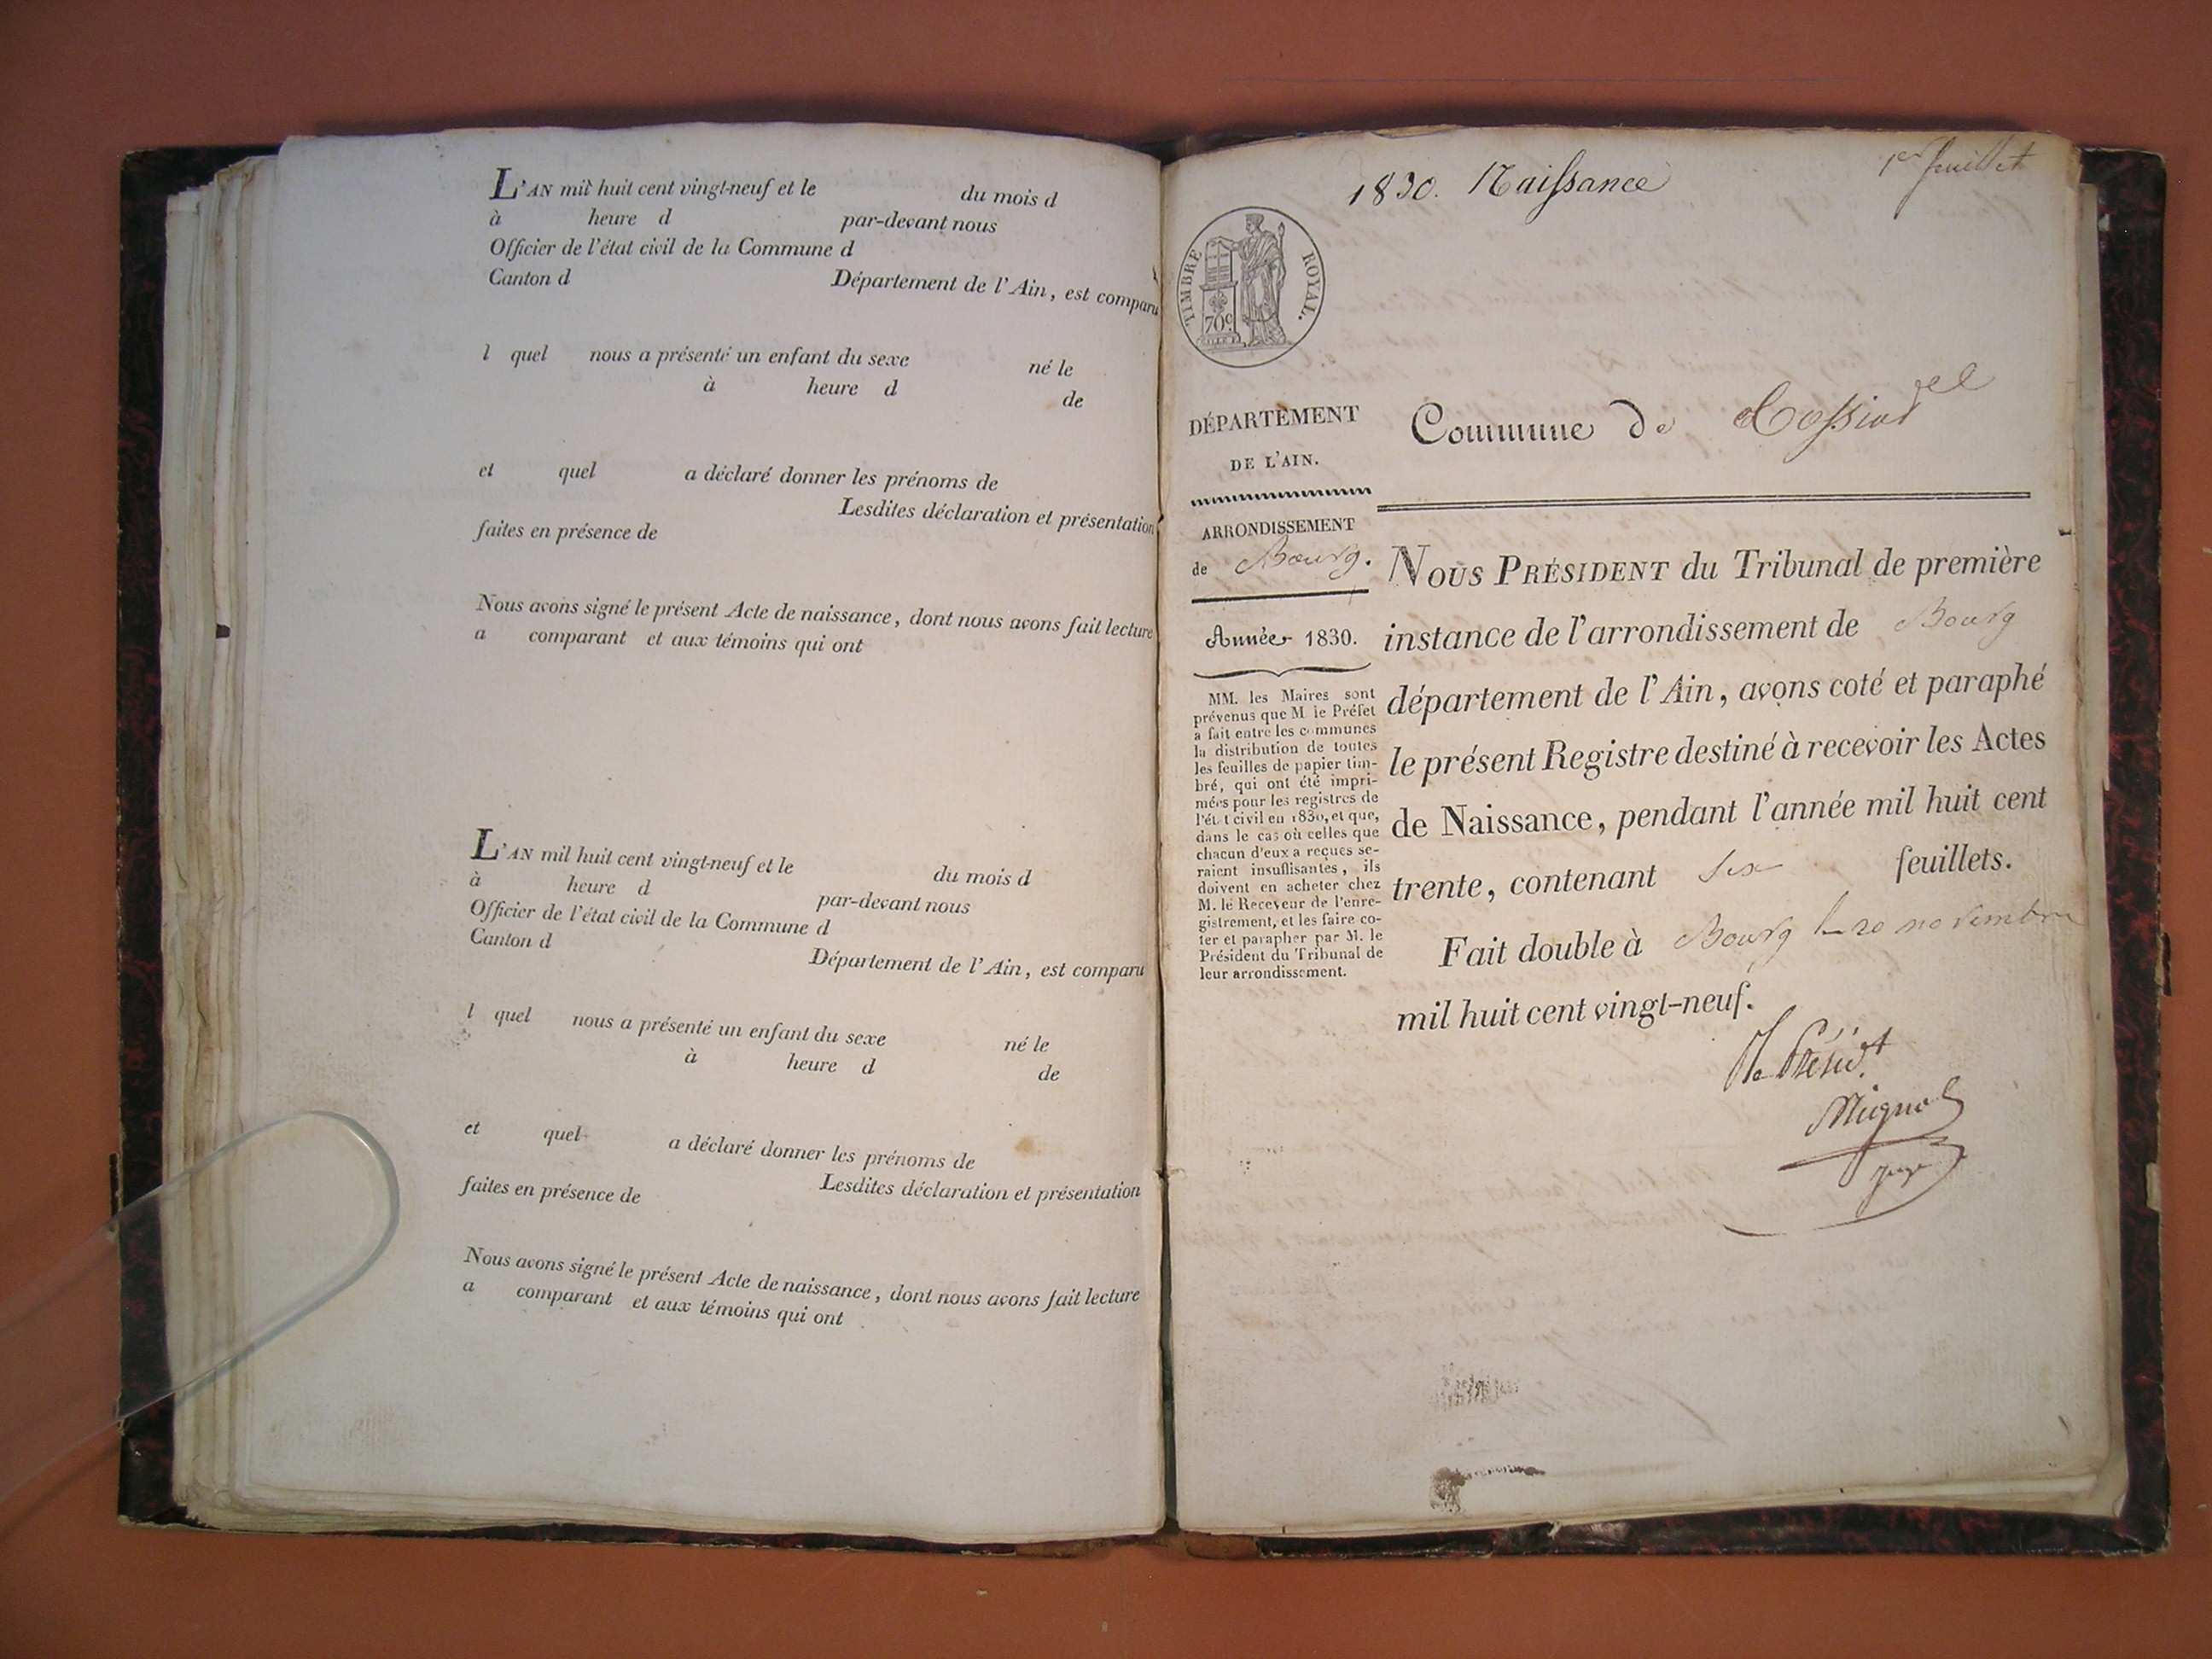 L'AN mil huit cent vingt-neuf et le du mois d
à heure d par-devant nous
Officier de l'état civil de la Commune d
Canton d Département de l'Ain, est comparu
l quel nous a présenté un enfant du sexe né le
à heure d de
et quel a déclaré donner les prénoms de
Lesdites déclaration et présentation
faites en présence de
Nous avons signé le présent Acte de naissance, dont nous avons fait lecture
a comparant et aux témoins qui ont
L'AN mil huit cent vingt-neuf et le du mois d
à heure d par-devant nous
Officier de l'état civil de la Commune d
Canton d Département de l'Ain, est comparu
l quel nous a présenté un enfant du sexe né le
à heure d de
et quel a déclaré donner les prénoms de
Lesdites déclaration et présentation
faites en présence de
Nous avons signé le présent Acte de naissance, dont nous avons fait lecture
a comparant et aux témoins qui ont
1er feuillet
1830. Naissance
TIMBRE ROYAL.
70c
DÉPARTEMENT
DE L'AIN.
ARRONDISSEMENT
de Bourg.
Année 1830.
MM. les Maires sont
prévenus que M le Préfet
a fait entre les communes
la distribution de toutes
les feuilles de papier tim-
bré, qui ont été impri-
mées pour les registres de
l'ét t civil en 1830, et que,
dans le cas où celles que
chacun d'eux a reçues se-
raient insuffisantes, ils
doivent en acheter chez
M. le Receveur de l'enre-
gistrement, et les faire co-
ter et parapher par M. le
Président du Tribunal de
leur arrondissement.
Commune de
NOUS PRÉSIDENT du Tribunal de première
instance de l'arrondissement de Bourg
département de l'Ain, avons coté et paraphé
le présent Registre destiné à recevoir les Actes
de Naissance, pendant l'année mil huit cent
trente, contenant six feuillets.
Fait double à Bourg le 20 novembre
mil huit cent vingt-neuf.
le Présidt
juge